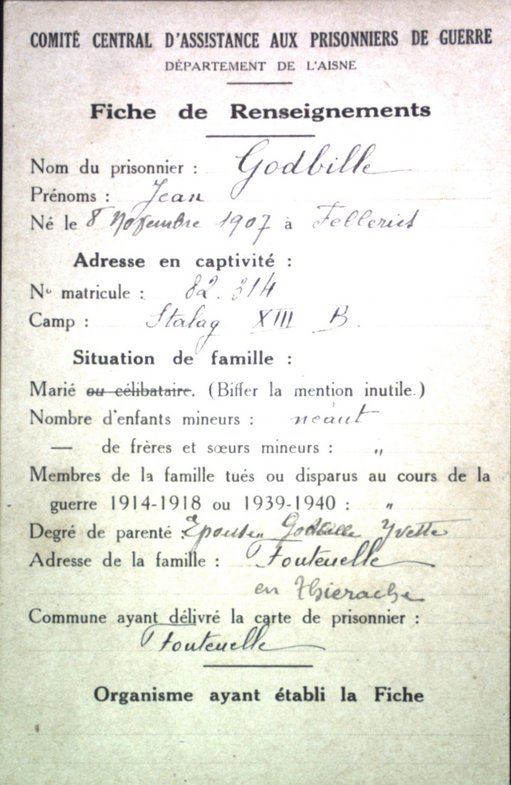 COMITÉ CENTRAL D'ASSISTANCE AUX PRISONNIERS DE GUERRE
DÉPARTEMENT DE L'AISNE
Fiche de Renseignements
Nom du prisonnier : Godbille
Prénoms : Jean
Né le 8 Novembre 1907 à Felleries
Adresse en captivité :
No matricule : 82.314
Camp : Stalag XIII B.
Situation de famille :
Marié ou célibataire. (Biffer la mention inutile.)
Nombre d'enfants mineurs : néant
— de frères et sœurs mineurs : "
Membres de la famille tués ou disparus au cours de la
guerre 1914-1918 ou 1939-1940 : "
Degré de parenté : Godbille Yvette
Adresse de la famille : Fontenelle
en Thierache
Commune ayant délivré la carte de prisonnier :
Fontenelle
Organisme ayant établi la Fiche